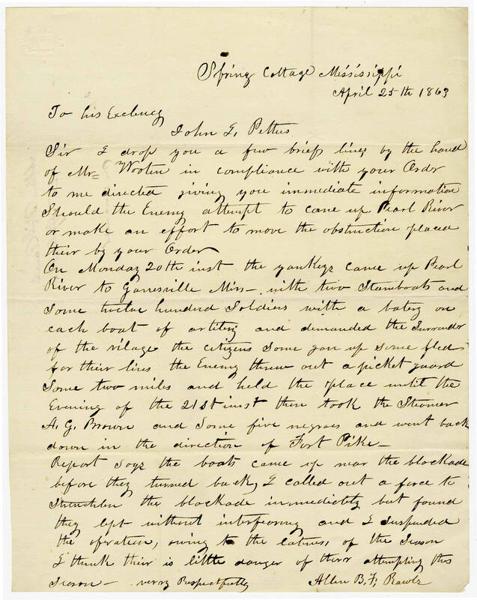 Spring Cottage Mississippi
April 25th 1863
To his Exclency
John J. Pettus
Sir I drop you a few briefs lines by the hand
of Mr= Worten in compliance with your Order
to me directed giving you immediate information
Should the Enemy attempt to come up Pearl River
or make an effort to move the obstruction placed
their by your Order
On Monday 20th inst the yankeys came up Pearl
River to Ganesville Miss— with two Steamboats and
Some twelve hundred Soldiers with a batry on
each boat of artilry and demanded the Surrender
of the vilage the citizens Some gave up Some fled
for their lives the Enemy threw out a picket guard
Some two miles and held the place until the
Evening of the 21st inst then took the Steamer
A. G. Brown and Some five negroes and went back
down in the direction of Fort Pike—
Report Says the boats came up near the blockade
before they turned back, I called out a force to
Strengthen the blockade immediately but found
they left without interfering and I Suspended
the opration, owing to the latness of the Season
I think their is little danger of their attempting this
Season— verry Respectfully Allen B. F. Rawls